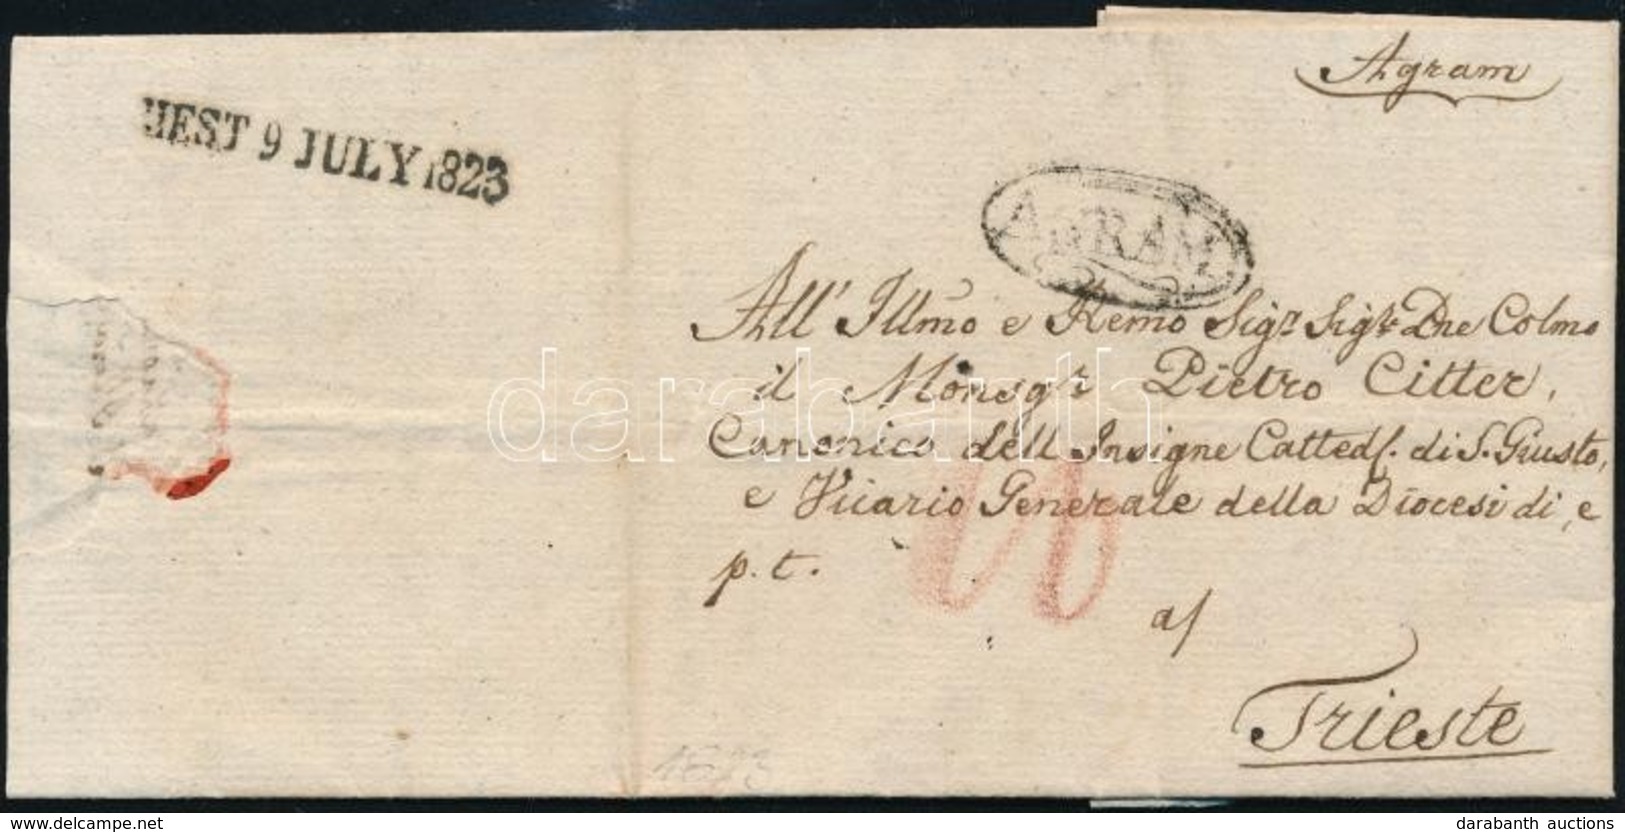 Agram
IEST 9 JULY 1823
AGRAM
All' Illmo e Remo Sigr Sigr Dne Colmo
il Monsgr Pietro Citter,
Canonico dell Insigne Catted. di S. Giusto,
e Vicario Generale della Diocesi di, e
p. t.
a
Trieste
1823
darabanth
www.delcampe.net
darabanth auctions